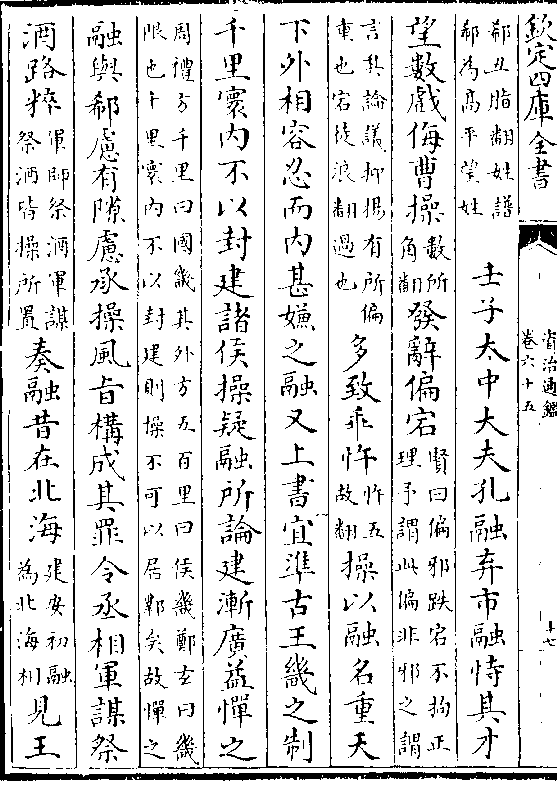 欽定四庫全書
資治通鑑
卷六十五
十七
郗丑脂翻姓譜
郗為高平望姓
壬子太中大夫孔融弃市融恃其才
望數戲侮曹操
數所
角翻
發辭偏宕
賢曰偏邪跌宕不拘正
理予謂此偏非邪之謂
言其論議抑揚有所偏
重也宕徒浪翻過也
多致乖忤
忤五
故翻
操以融名重天
下外相容忍而内甚嫌之融又上書宜準古王畿之制
千里寰内不以封建諸侯操疑融所論建漸廣益憚之
周禮方千里曰國畿其外方五百里曰侯畿鄭玄曰畿
限也千里寰内不以封建則操不可以居鄴矣故憚之
融與郗慮有隙慮承操風旨構成其罪令丞相軍謀祭
酒路粹
軍師祭酒軍謀
祭酒皆操所置
奏融昔在北海
建安初融
為北海相
見王